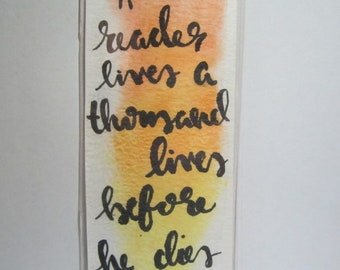 reader
lives a
thousand
lives
before
he dies